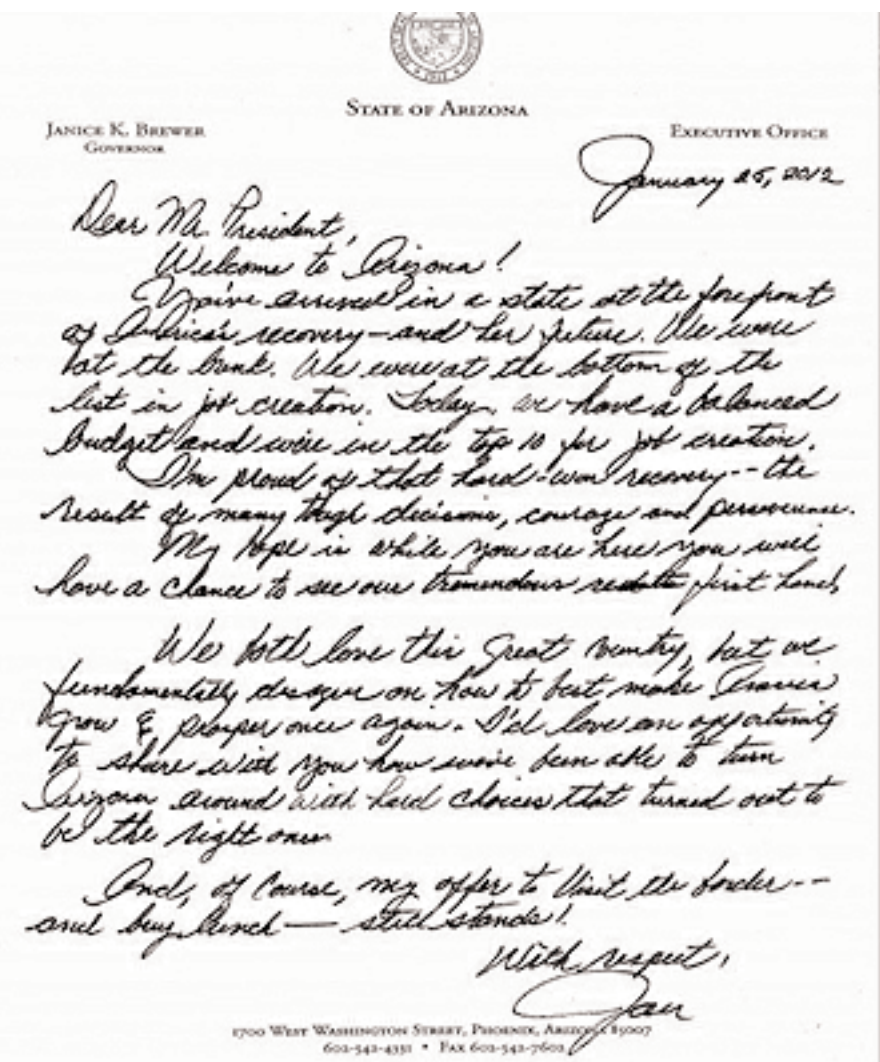 1912
STATE OF ARIZONA
JANICE K. BREWER
GOVERNOR
EXECUTIVE OFFICE
January 25, 2012
Dear Mr. President,
Welcome to Arizona!
You've arrived in a state at the forefront
of America's recovery - and her future. We were
at the brink. We were at the bottom of the
list in job creation. Today, we have a balanced
budget and we're in the top 10 for job creation.
I'm proud of that hard-won recovery -- the
result of many tough decisions, courage and perseverance.
My hope is while you are here you will
have a chance to see our tremendous results first hand.
We both love this great country, but we
fundamentally disagree on how to best make America
grow & prosper once again. I'd love an opportunity
to share with you how we've been able to turn
Arizona around with hard choices that turned out to
be the right ones.
And, of course, my offer to visit the border --
and buy lunch — still stands!
With respect,
Jan
1700 WEST WASHINGTON STREET, PHOENIX, ARIZONA 85007
602-542-4331 • FAX 602-542-7602